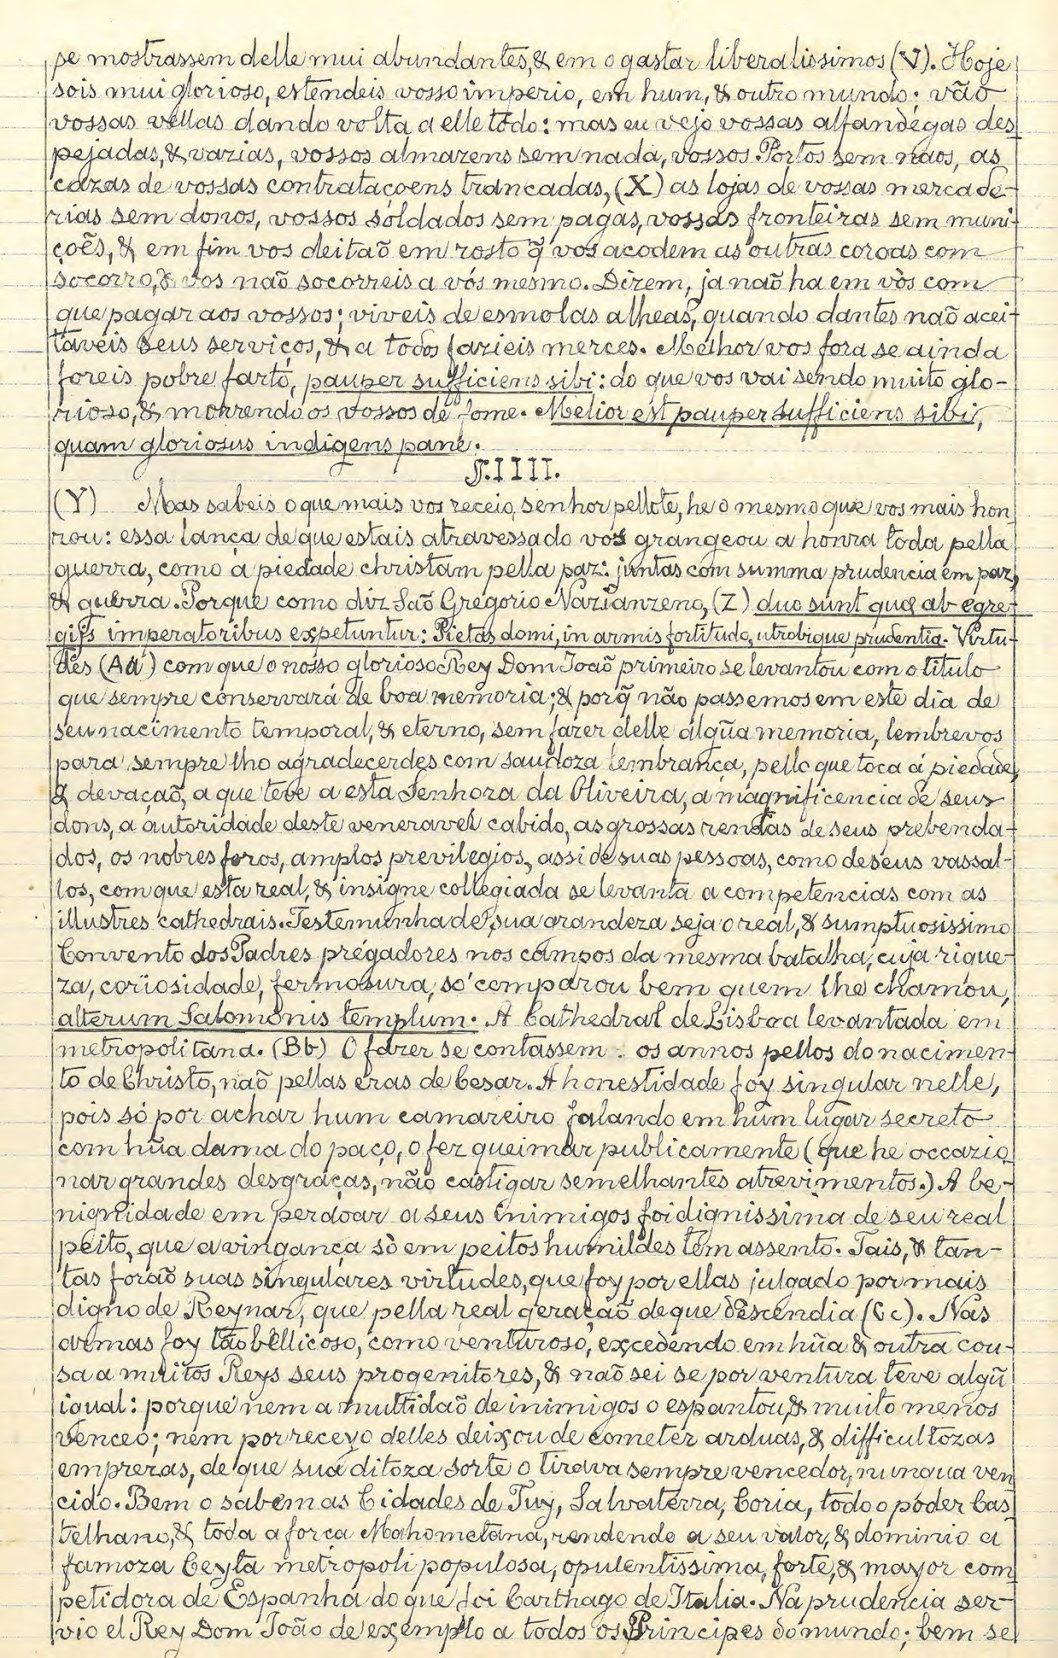 se mostrassem delle mui abundantes, & em o gastar liberalissimos (V). Hoje
sois mui glorioso, estendeis vosso imperio, em hum, & outro mundo; vão
vossas vellas dando volta a elle todo: mas eu vejo vossas alfandegas des
pejadas, & vazias, vossos almazens sem nada, vossos Portos sem naos, as
cazas de vossas contrataçoens trancadas, (X) as lojas de vossas mercade-
rias sem donos, vossos soldados sem pagas, vossas fronteiras sem muni-
çoẽs, & em fim vos deitaõ em rosto q̃ vos acodem as outras coroas com
socorro, & vos naõ socorreis a vós mesmo. Dizem, ja naõ ha em vòs com
que pagar aos vossos; viveis de esmolas alheas, quando dantes naõ acei-
taveis seus serviços, & a todos fazieis merces. Melhor vos fora se ainda
foreis pobre farto, pauper sufficiens sibi: do que vos vai sendo muito glo-
rioso, & morrendo os vossos de fome. Melior est pauper sufficiens sibi,
quam gloriosus indigens pane.
§.IIII.
(Y) Mas sabeis o que mais vos receio, senhor pellote, he o mesmo que vos mais hon
rou: essa lança de que estais atravessado vos grangeou a honra toda pella
guerra, como a piedade christam pella paz: juntas com summa prudencia em paz,
& guerra. Porque como diz Saõ Gregorio Nazianzeno, (Z) duo sunt quæ ab egre-
gijs imperatoribus expetuntur: Pietas domi, in armis fortitudo, utrobique prudentia. Virtu-
des (Aa) com que o nosso glorioso Rey Dom Joaõ primeiro se levantou com o titulo
que sempre conservará de boa memoria; & porq̃ não passemos em este dia de
seu nacimento temporal, & eterno, sem fazer delle algũa memoria, lembrevos
para sempre lho agradecerdes com saudoza lembrança, pello que toca á piedade,
& devaçaõ, a que teve a esta Senhora da Oliveira, a magnificencia de seus
dons, a autoridade deste veneravel cabido, as grossas rendas de seus prebenda-
dos, os nobres foros, amplos previlegios, assi de suas pessoas, como de seus vassal-
los, com que esta real, & insigne collegiada se levanta a competencias com as
illustres cathedrais. Testemunha de sua grandeza seja o real, & sumptuosissimo
Convento dos Padres prégadores nos campos da mesma batalha, cuja rique-
za, coriosidade, fermosura, só comparou bem quem lhe chamou,
alterum Salomonis templum. A Cathedral de Lisboa levantada em
metropolitana. (Bb) O fazer se contassem os annos pellos do nacimen-
to de Christo, naõ pellas eras de Cesar. A honestidade foy singular nelle,
pois só por achar hum camareiro falando em hum lugar secreto
com hũa dama do paço, o fez queimar publicamente (que he occazio
nar grandes desgraças, não castigar semelhantes atrevimentos.) A be-
nignidade em perdoar a seus inimigos foi dignissima de seu real
peito, que a vingança só em peitos humildes tem assento. Tais, & tan-
tas foraõ suas singulares virtudes, que foy por ellas julgado por mais
digno de Reynar, que pella real geraçaõ de que descendia (Cc). Nas
armas foy taõ bellicoso, como venturoso, excedendo em hũa & outra cou-
sa a muitos Reys seus progenitores, & naõ sei se por ventura teve algũ
igual: porque nem a multidaõ de inimigos o espantou, & muito menos
venceo; nem por receyo delles deixou de cometer arduas, & difficultozas
emprezas, de que sua ditoza sorte o tirava sempre vencedor, nunqua ven
cido. Bem o sabem as Cidades de Tuy, Salvaterra, Coria, todo o poder Cas
telhano, & toda a força Mahometana, rendendo a seu valor, & dominio a
famoza Ceyta metropoli populosa, opulentissima, forte, & mayor com
petidora de Espanha do que foi Carthago de Italia. Na prudencia ser-
vio el Rey Dom João de exemplo a todos os Principes do mundo; bem se